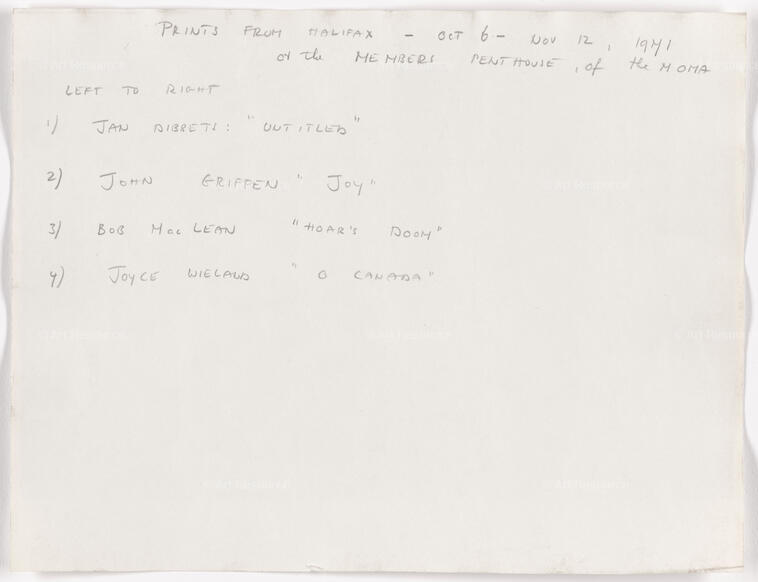 PRINTS FROM HALIFAX - OCT 6 - NOV 12, 1971
at the MEMBERS PENTHOUSE, of the MOMA
LEFT TO RIGHT
1) JAN DIBBETS: "UNTITLED"
2) JOHN GRIFFEN "JOY"
3) BOB MacLEAN "HOAR'S DOOM"
4) JOYCE WIELAND "O CANADA"
© Art Resource
© Art Resource
© Art Resource
© Art Resource
© Art Resource
© Art Resource